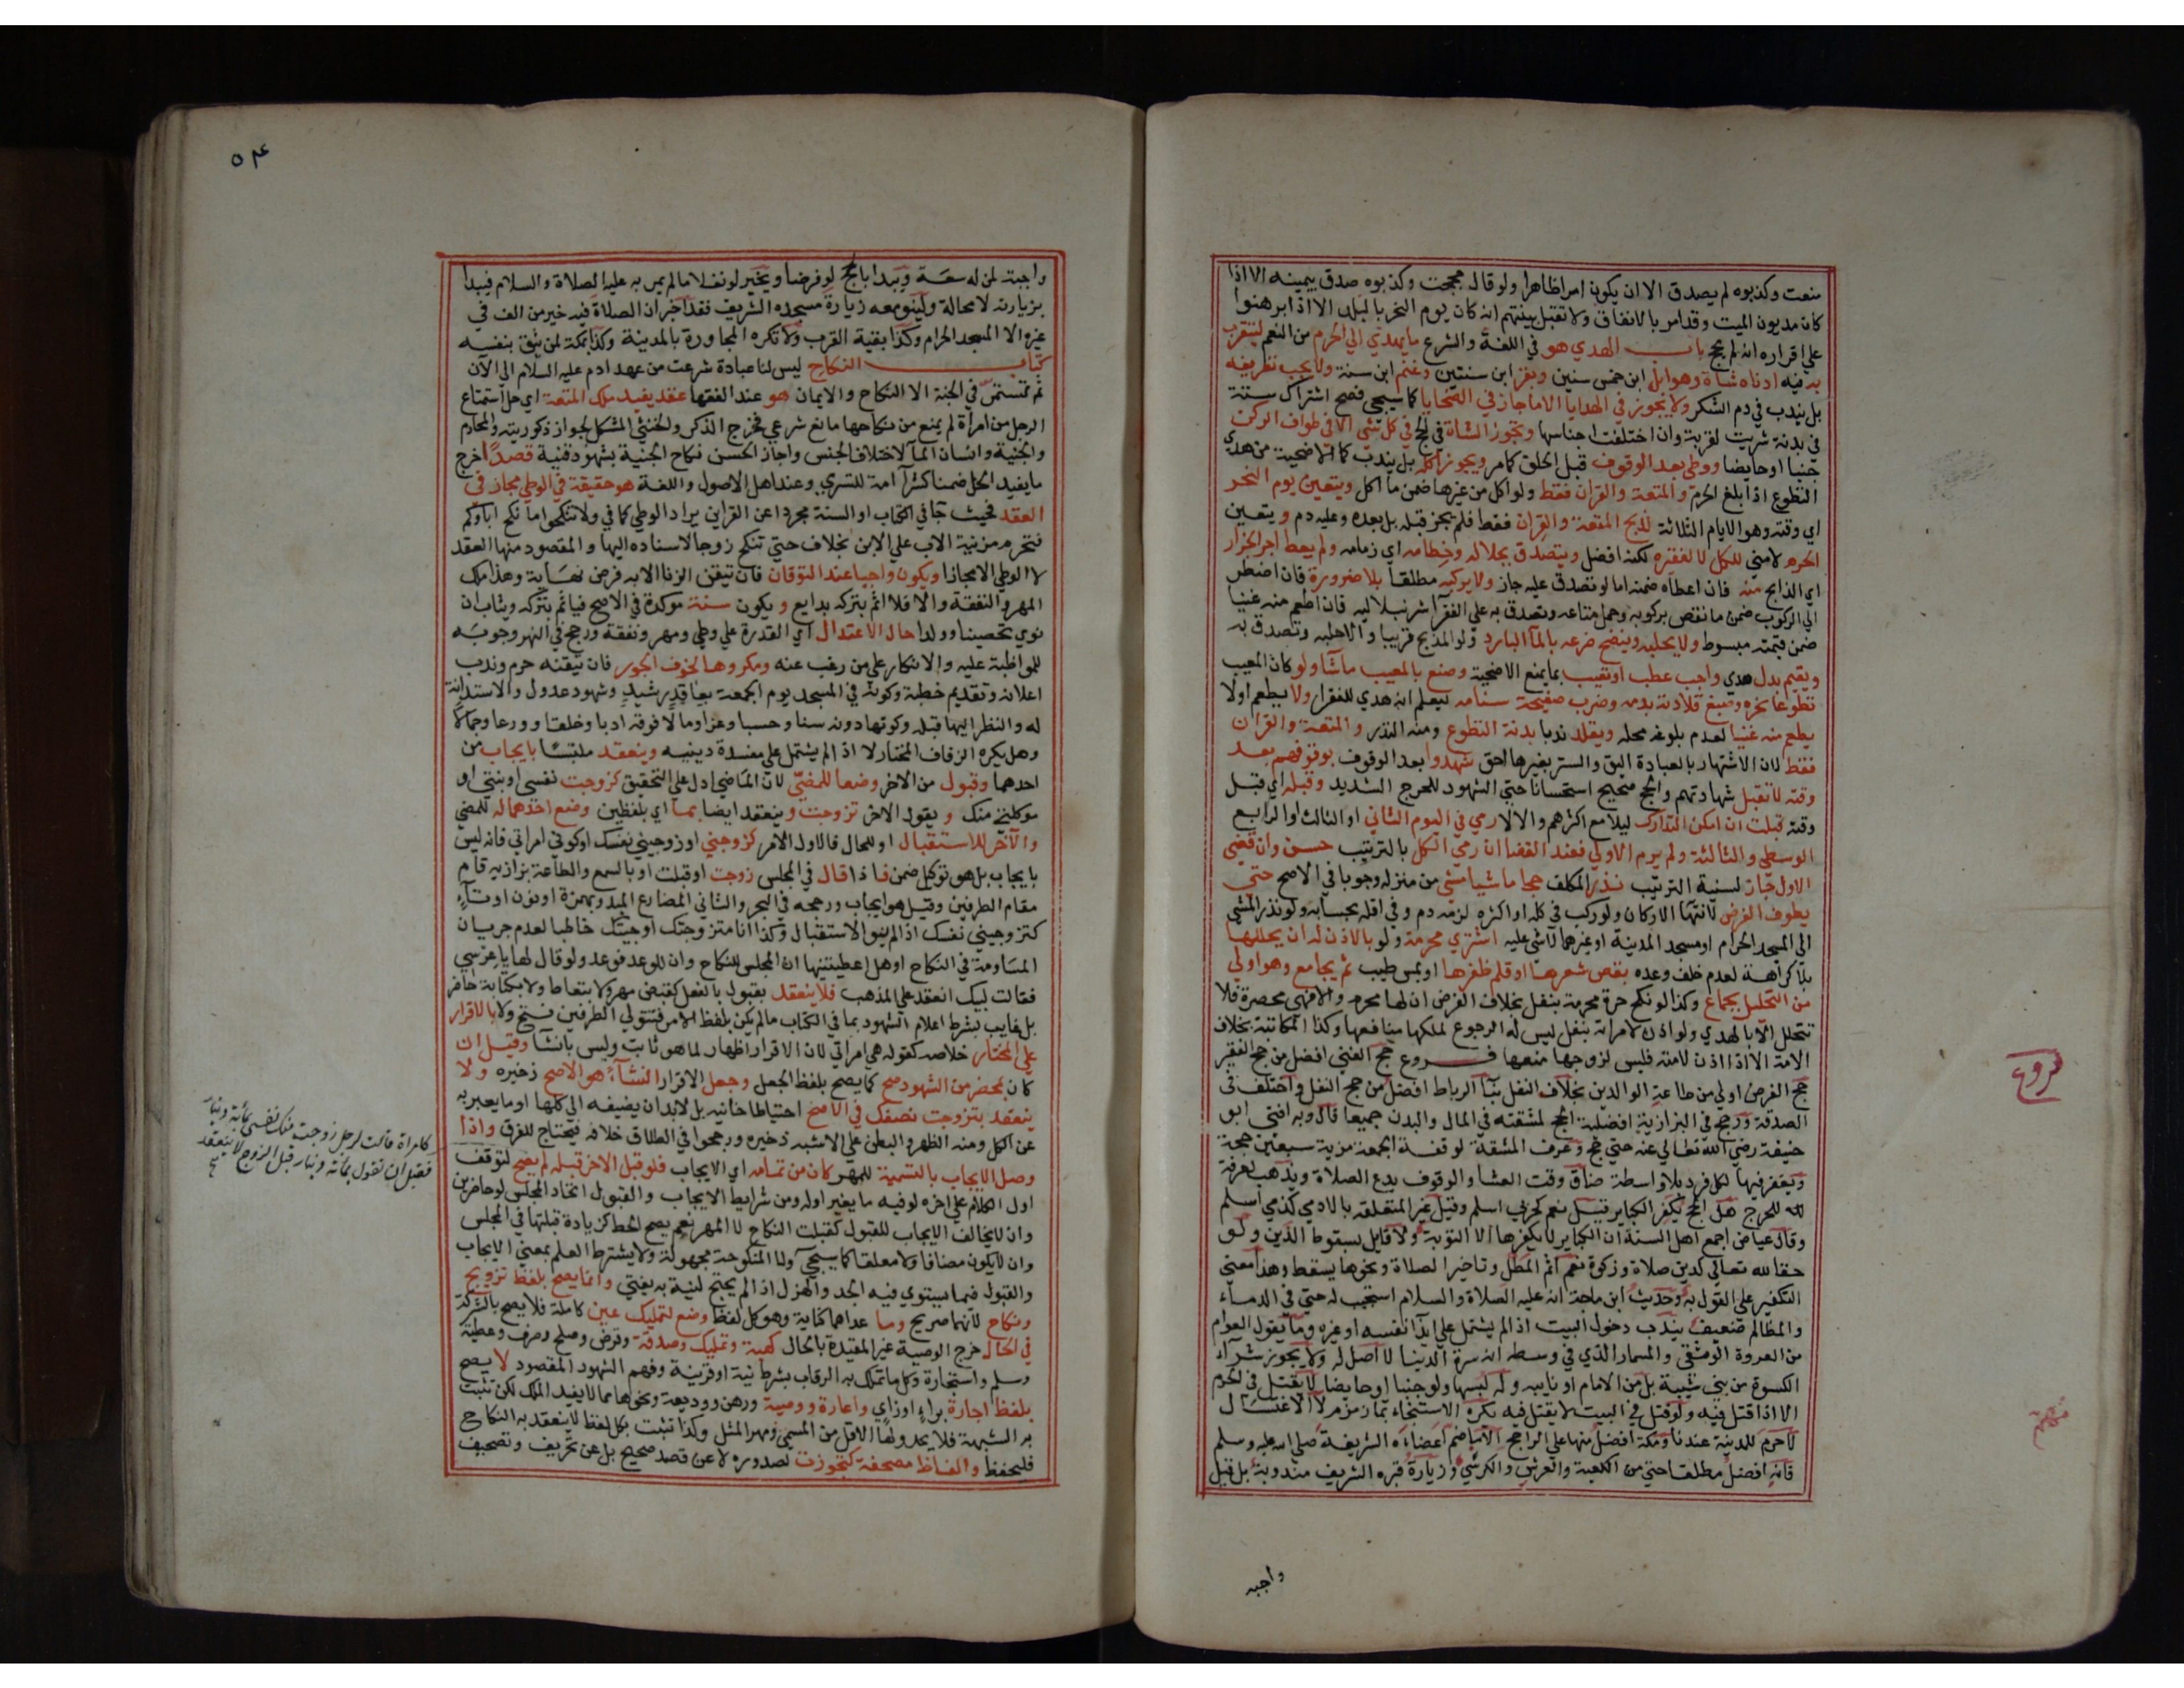 منعت وكذبوه لم يصدق الا ان يكون امرا ظاهرا ولو قال حججت وكذبوه صدق بيمينه الا اذا
كان مديون الميت وقد امر بالانفاق ولا تقبل بينتهم انه كان يوم النحر بالبلد الا اذا برهنوا
علي اقراره انه لم يحج باب الهدي هو في اللغة والشرع ما يهدي الي الحرم من النعم ليتقرب
به فيه ادناه شاة وهو ابل ابن خمس سنين وبقر ابن سنتين وغنم ابن سنة ولا يجب تعريفه
بل يندب في دم الشكر ولا يجوز في الهدايا الا ما جاز في الضحايا كما سيجي فصح اشتراك ستة
في بدنة شريت لقربة وان اختلفت اجناسها وتجوز الشاة في الحج في كل شي الا في طواف الركن
جنبا او حايضا ووطي بعد الوقوف قبل الحلق كما مر ويجوز اكله بل يندب كالاضحية من هدي
التطوع اذا بلغ الحرم والمتعة والقران فقط ولو اكل من غيرها ضمن ما اكل ويتعين يوم النحر
اي وقته وهو الايام الثلاثة لذبح المتعة والقران فقط فلم يجز قبله بل بعده وعليه دم ويتعين
الحرم لا مني للكل لا لفقيره لكنه افضل ويتصدق بجلاله وخطامه اي زمامه ولم يعط اجر الجزار
اي الذابح منه فان اعطاه ضمنه اما لو تصدق عليه جاز ولا يركبه مطلقا بلا ضرورة فان اضطر
الي الركوب ضمن ما نقص بركوبه وحمل متاعه وتصدق به علي الفقرآ شرنبلاليه فان اطعم منه غنيا
ضمن قيمته مبسوط ولا يحلبه وينضح ضرعه بالمآ البارد ولو المذبح قريبا والا حلبه وتصدق به
ويقيم بدل هدي واجب عطب او تعيب بما يمنع الاضحية وصنع بالمعيب ما شآ ولو كان المعيب
تطوعا نحره وصبغ قلادته بدمه وضرب صفيحة سنامه ليعلم انه هدي للفقرا ولا يطعم اولا
يطعم منه غنيا لعدم بلوغه محله ويقلد ندبا بدنة التطوع ومنه النذر والمتعة والقران
فقط لان الاشتهار بالعبادة اليق والستر بغيرها احق شهدوا بعد الوقوف بوقوفهم بعد
وقته لا تقبل شهادتهم والحج صحيح استحسانا حتي الشهود للحرج الشديد وقبله اي قبل
وقته قبلت ان امكن التدارك ليلا مع اكثرهم والا لا رمي في اليوم الثاني او الثالث او الرابع
الوسطي والثالثة ولم يرم الاولي فعند القضا ان رمي الكل بالترتيب حسن وان قضي
الاولي جاز لسنية الترتيب نذر المكلف حجا ماشيا مشي من منزله وجوبا في الاصح حتي
يطوف الفرض لانتهآ الاركان ولو ركب في كله او اكثره لزمه دم وفي اقله بحسابه ولو نذر المشي
الي المسجد الحرام او مسجد المدينة او غيرهما لا شي عليه اشتري محرمة ولو بالاذن له ان يحللها
بلا كراهة لعدم خلف وعده بقص شعرها او قلم ظفرها او بمس طيب ثم يجامع وهو اولي
من التحليل بجماع وكذا لو نكح حرة محرمة بنفل بخلاف الفرض ان لها محرم والا فهي محصرة فلا
تتحلل الا بالهدي ولو اذن لامراته بنفل ليس له الرجوع لملكها منافعها وكذا المكاتبة بخلاف
الامة الا اذا اذن لامته فليس لزوجها منعها فروع حج الغني افضل من حج الفقير
حج الفرض اولي من طاعة الوالدين بخلاف النفل بنآ الرباط افضل من حج النفل واختلف في
الصدقة ورجح في البزازية افضلية الحج لمشقته في المال والبدن جميعا قال وبه افتي ابو
حنيفة رضي الله تعالي عنه حتي حج وعرف المشقة لوقفة الجمعة مزية سبعين حجة
ويغفر فيها لكل فرد بلا واسطة ضاق وقت العشا والوقوف يدع الصلاة ويذهب لعرفة
للحرج هل الحج يكفر الكباير قيل نعم كحربي اسلم وقيل غير المتعلقة بالادمي كذمي اسلم
وقال عياض اجمع اهل السنة ان الكباير لا يكفرها الا التوبة ولا قايل بسقوط الدين ولو
حقا لله تعالي كدين صلاة وزكوة نعم اثم المطل وتاخير الصلاة ونحوها يسقط وهذا معني
التكفير علي القول به وحديث ابن ماجة انه عليه الصلاة والسلام استجيب له حتي في الدماء
والمظالم ضعيف يندب دخول البيت اذا لم يشتمل علي ايذآ نفسه او غيره وما يقول العوام
من العروة الوثقي والمسمار الذي في وسطه انه سرة الدنيا لا اصل له ولا يجوز شرآء
الكسوة من بني شيبة بل من الامام او نايبه وله لبسها ولو جنبا او حايضا لا يقتل في الحرم
الا اذا قتل فيه ولو قتل في البيت لا يقتل فيه يكره الاستنجاء بمآ زمزم لا الاغتسال
لا حرم للمدينة عندنا ومكة افضل منها علي الراجح الا ما ضم اعضاءه الشريفة صلي الله عليه وسلم
فانه افضل مطلقا حتي من الكعبة والعرش والكرسي وزيارة قبره الشريف مندوبة بل قيل
واجبه
فروع
٥٤
واجبة لمن له سعة ويبدا بالحج لو فرضا ويخير لو نفلا ما لم يمر به عليه الصلاة والسلام فيبدا
بزيارته لا محالة ولينو معه زيارة مسجده الشريف فقد اخبر ان الصلاة فيه خير من الف في
غيره الا المسجد الحرام وكذا بقية القرب ولا تكره المجاورة بالمدينة وكذا بمكة لمن يثق بنفسه
كتاب النكاح ليس لنا عبادة شرعت من عهد ادم عليه السلام الي الآن
ثم تستمر في الجنة الا النكاح والايمان هو عند الفقها عقد يفيد ملك المتعة اي حل استمتاع
الرجل من امراة لم يمنع من نكاحها مانع شرعي فخرج الذكر والخنثي المشكل لجواز ذكوريته والمحارم
والجنية وانسان المآ لاختلاف الجنس واجاز الحسن نكاح الجنية بشهود قنية قصدا خرج
ما يفيد الحل ضمنا كشرآ امة للتسري وعند اهل الاصول واللغة هو حقيقة في الوطي مجاز في
العقد فحيث جآ في الكتاب او السنة مجردا عن القراين يراد الوطي كما في ولا تنكحوا ما نكح اباؤكم
فتحرم مزنية الاب علي الابن بخلاف حتي تنكح زوجا لاسناده اليها والمقصود منها العقد
لا الوطي الا مجازا ويكون واجبا عند التوقان فان تيقن الزنا الا به فرض نهاية وهذا ملك
المهر والنفقة والا فلا اثم بتركه بدايع ويكون سنة موكدة في الاصح فياثم بتركه ويثاب ان
نوي تحصينا وولدا حال الاعتدال اي القدرة علي وطي ومهر ونفقة ورجح في النهر وجوبه
للمواظبة عليه والانكار علي من رغب عنه ومكروها لخوف الجور فان تيقنه حرم وندب
اعلانه وتقديم خطبة وكونه في المسجد يوم الجمعة بعاقد رشيد وشهود عدول والاستدانة
له والنظر اليها قبله وكونها دونه سنا وحسبا وعزا ومالا وفوقه ادبا وخلقا وورعا وجمالا
وهل يكره الزفاف المختار لا اذا لم يشتمل علي مفسدة دينية وينعقد ملتبسا بايجاب من
احدهما وقبول من الاخر وضعا للمضي لان الماضي ادل علي التحقيق كزوجت نفسي او بنتي او
موكلتي منك ويقول الاخر تزوجت وينعقد ايضا بما اي بلفظين وضع احدهما له للمضي
والآخر للاستقبال او للحال فالاول الامر كزوجني او زوجيني نفسك او كوني امراتي فانه ليس
بايجاب بل هو توكيل ضمني فاذا قال في المجلس زوجت او قبلت او بالسمع والطاعة بزازيه قام
مقام الطرفين وقيل هو ايجاب ورجحه في البحر والثاني المضارع المبدو بهمزة او نون او تآء
كتزوجيني نفسك اذا لم ينو الاستقبال وكذا انا متزوجك او جيتك خاطبا لعدم جريان
المساومة في النكاح او هل اعطيتنيها ان المجلس للنكاح وان للوعد فوعد ولو قال لها يا عرسي
فقالت لبيك انعقد علي المذهب فلا ينعقد بقبول بالفعل كقبض مهر ولا بتعاط ولا بكتابة حاضر
بل غايب بشرط اعلام الشهود بما في الكتاب ما لم يكن بلفظ الامر فتتولي الطرفين فتح ولا بالاقرار
علي المختار خلاصه كقوله هي امراتي لان الاقرار اظهار لما هو ثابت وليس بانشآ وقيل ان
كان بمحضر من الشهود صح كما يصح بلفظ الجعل وجعل الاقرار انشآءً هو الاصح ذخيره ولا
ينعقد بتزوجت نصفك في الاصح احتياطا خانيه بل لا بد ان يضيفه الي كلها او ما يعبر به
عن الكل ومنه الظهر والبطن علي الاشبه ذخيره ورجحوا في الطلاق خلافه فيحتاج للفرق واذا
وصل الايجاب بالتسمية للمهر كان من تمامه اي الايجاب فلو قبل الاخر قبله لم يصح لتوقف
اول الكلام علي اخره لو فيه ما يغير اوله ومن شرايط الايجاب والقبول اتحاد المجلس لو حاضرين
وان لا يخالف الايجاب للقبول كقبلت النكاح لا المهر نعم يصح الحط كزيادة قبلتها في المجلس
وان لا يكون مضافا ولا معلقا كما سيجي ولا المنكوحة مجهولة ولا يشترط العلم بمعني الايجاب
والقبول فيما يستوي فيه الجد والهزل اذ لم يحتج لنية به يفتي وانما يصح بلفظ تزويج
ونكاح لانهما صريح وما عداهما كناية وهو كل لفظ وضع لتمليك عين كاملة فلا يصح بالشركة
في الحال خرج الوصية غير المقيدة بالحال كهبة وتمليك وصدقة وقرض وصلح وصرف وعطية
وسلم واستجارة وكل ما تملك به الرقاب بشرط نية او قرينة وفهم الشهود المقصود لا يصح
بلفظ اجارة براء او زاي واعارة ووصية ورهن ووديعة ونحوها مما لا يفيد الملك لكن تثبت
به الشبهة فلا يحد ولها الاقل من المسمي ومهر المثل وكذا تثبت بكل لفظ لا ينعقد به النكاح
فليحفظ والفاظ مصحفة كتجوزت لصدوره لا عن قصد صحيح بل عن تحريف وتصحيف
كامراة قالت لرجل زوجت منك نفسي بمائة دينار
فقبل ان تقول بمائة دينار قبل الزوج لا ينعقد